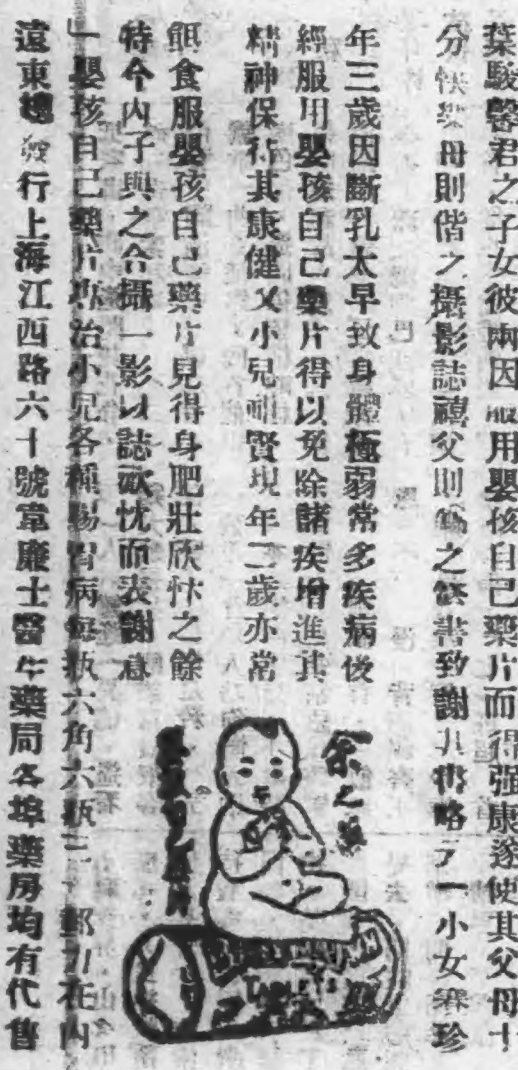 葉駿聲君之子女彼兩因服用嬰孩自己藥片而得强康遂使其父母十
分快樂母則偕之攝影誌禧父則為之繕書致謝其書略云一小女霖珍
年三歲因斷乳太早致身體極弱常多疾病後
經服用嬰孩自己藥片得以免除諸疾增進其
精神保持其康健又小兒祖賢現年二歲亦常
飼食服嬰孩自己藥片見得身肥壯欣忭之餘
特令內子與之合攝一影以誌歡忱而表謝意
嬰孩自己藥片專治小兒各種腸胃病每瓶六角六瓶三 郵力在內
遠東總發行上海江西路六十號韋廉士醫生藥局各埠藥房均有代售
余之
嬰孩自己藥片
TABLETS